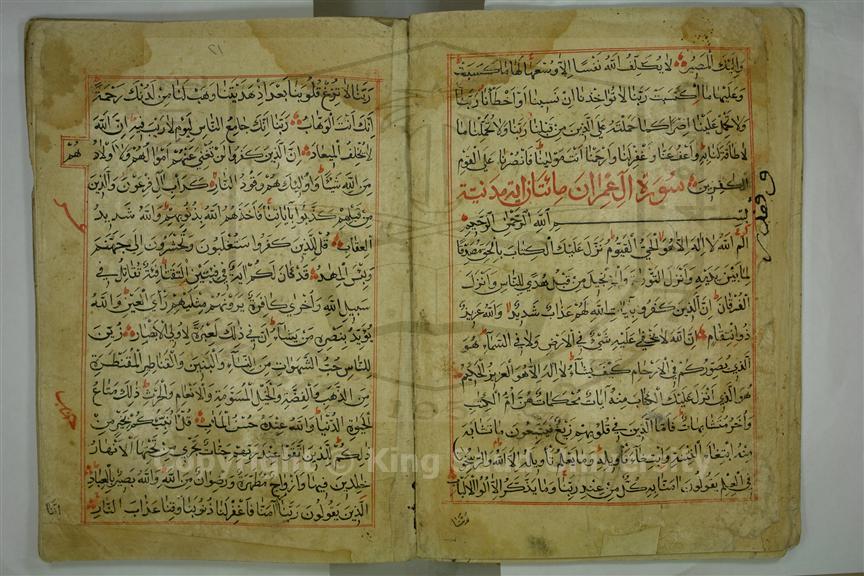 واليك المصير لا يكلف الله نفسا الا وسعها لها ما كسبت
وعليها ما اكتسبت ربنا لا تؤاخذنا ان نسينا او اخطأنا ربنا
ولا تحمل علينا اصرا كما حملته على الذين من قبلنا ربنا ولا تحملنا ما
لا طاقة لنا به واعف عنا واغفر لنا وارحمنا انت مولينا فانصرنا على القوم
الكفرين سورة آل عمران مائتا آية مدنية
بسم الله الرحمن الرحيم
الم الله لا اله الا هو الحي القيوم نزل عليك الكتاب بالحق مصدقا
لما بين يديه وانزل التورية والانجيل من قبل هدى للناس وانزل
الفرقان ان الذين كفروا بايات الله لهم عذاب شديد والله عزيز
ذو انتقام ان الله لا يخفى عليه شئ في الارض ولا في السماء هو
الذي يصوركم في الارحام كيف يشاء لا اله الا هو العزيز الحكيم
هو الذي انزل عليك الكتاب منه آيات محكمات هن ام الكتب
واخر متشابهات فاما الذين في قلوبهم زيغ فيتبعون ما تشابه
منه ابتغاء الفتنة وابتغاء تأويله وما يعلم تأويله الا الله والراسخون
في العلم يقولون امنا به كل من عند ربنا وما يذكر الا اولوا الالباب
ربنا
٢١
ربنا لا تزغ قلوبنا بعد اذ هديتنا وهب لنا من لدنك رحمة
انك انت الوهاب ربنا انك جامع الناس ليوم لا ريب فيه ان الله
لا يخلف الميعاد ان الذين كفروا لن تغني عنهم اموالهم ولا اولاد
هم
من الله شيئا واولئك هم وقود النار كدأب ال فرعون والذين
من قبلهم كذبوا باياتنا فاخذهم الله بذنوبهم والله شديد
العقاب قل للذين كفروا ستغلبون وتحشرون الى جهنم
وبئس المهاد قد كان لكم اية في فئتين التقتا فئة تقاتل في
سبيل الله واخرى كافرة يرونهم مثليهم رأي العين والله
يؤيد بنصره من يشاء ان في ذلك لعبرة لاولي الابصار زين
للناس حب الشهوات من النساء والبنين والقناطير المقنطرة
من الذهب والفضة والخيل المسومة والانعام والحرث ذلك متاع
الحيوة الدنيا والله عنده حسن الماب قل اؤنبئكم بخير من
ذلكم للذين اتقوا عند ربهم جنات تجري من تحتها الانهار
خالدين فيها وازواج مطهرة ورضوان من الله والله بصير بالعباد
الذين يقولون ربنا اننا آمنا فاغفر لنا ذنوبنا وقنا عذاب النار
Copyright © King Saud University